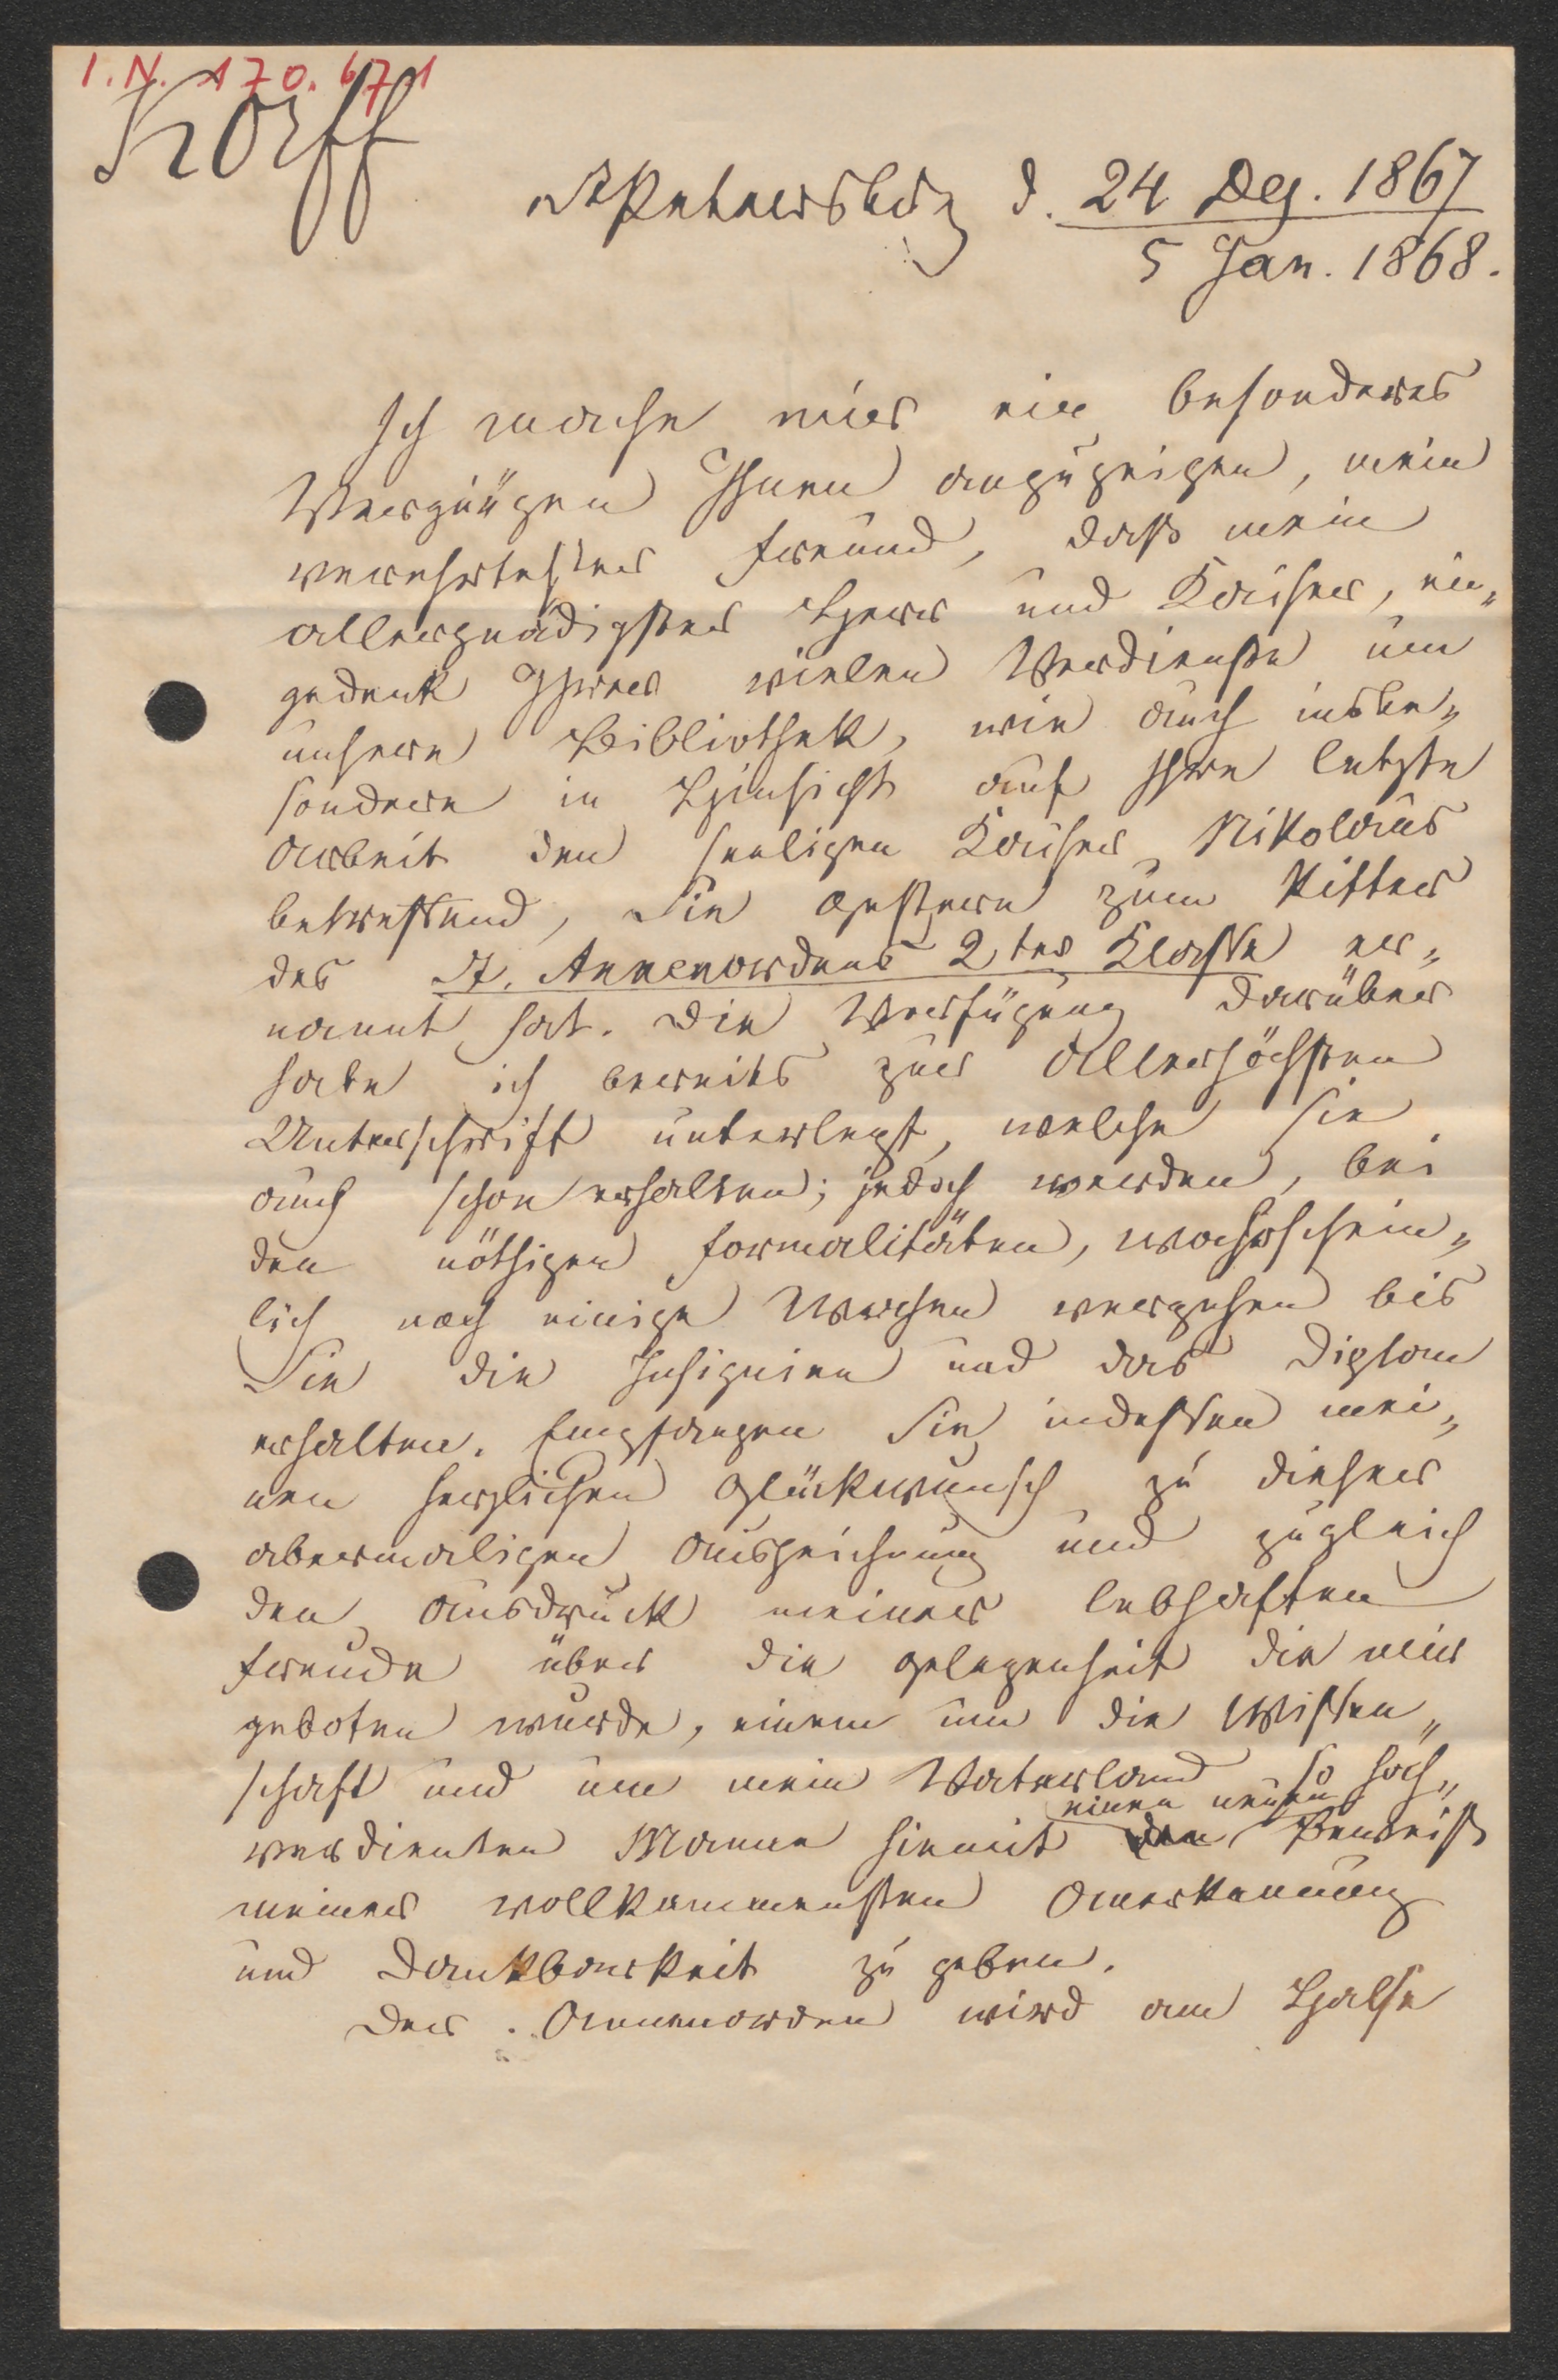 I. N. 170.671
Korff
St Petersburg d. 24 Dez. 1867
5 Jan. 1868.
Ich mache mir ein besonderes
Vergnügen Ihnen anzuzeigen, mein
verehrtester Freund, dass mein
allergnädigster Herr und Kaiser, ein„
gedenk Ihrer vielen Verdienste um
unsere Bibliothek, wie auch insbe„
sondere in Hinsicht auf Ihre letzte
Arbeit den seeligen Kaiser Nikolaus
betreffend, Sie gestern zum Ritter
des St. Annenordens 2ter Klasse er„
nannt hat. Die Verfügung darüber
habe ich bereits zur Allerhöchsten
Unterschrift unterlegt, welche sie
auch schon erhalten; jedoch werden, bei
den nöthigen Formalitäten, wahrschein„
lich noch einige Wochen vergehen bis
Sie die Insignien und das Diplom
erhalten. Empfangen Sie indessen mei„
nen herzlichen Glückwunsch zu dieser
abermaligen Auszeichnung und zugleich
den Ausdruck meiner lebhaften
Freude über die Gelegenheit die mir
geboten wurde, einem um die Wissen„
schaft und um mein Vaterland so hoch„
einen neuen
verdienten Manne hiemit den Beweis
meiner vollkommensten Anerkennung
und Dankbarkeit zu geben.
Der Annenorden wird am Halse